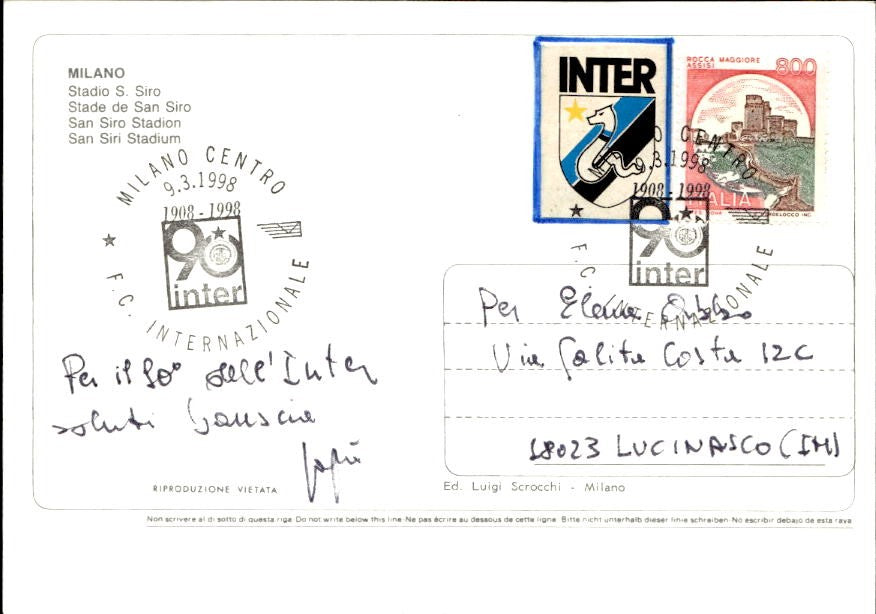 MILANO
Stadio S. Siro
Stade de San Siro
San Siro Stadion
San Siri Stadium
MILANO CENTRO
9.3.1998
1908-1998
90
inter
F.C. INTERNAZIONALE
INTER
ROCCA MAGGIORE
ASSISI
800
ITALIA
MILANO CENTRO
9.3.1998
1908-1998
90
inter
F.C. INTERNAZIONALE
Per il 90° dell'Inter
saluti bauscia
Per Elena
Via Salita Costa 12C
18023 LUCINASCO (IM)
RIPRODUZIONE VIETATA
Ed. Luigi Scrocchi - Milano
Non scrivere al di sotto di questa riga Do not write below this line-Ne pas écrire au dessous de cette ligne. Bitte nicht unterhalb dieser linie schreiben-No escribir debajo de esta raya